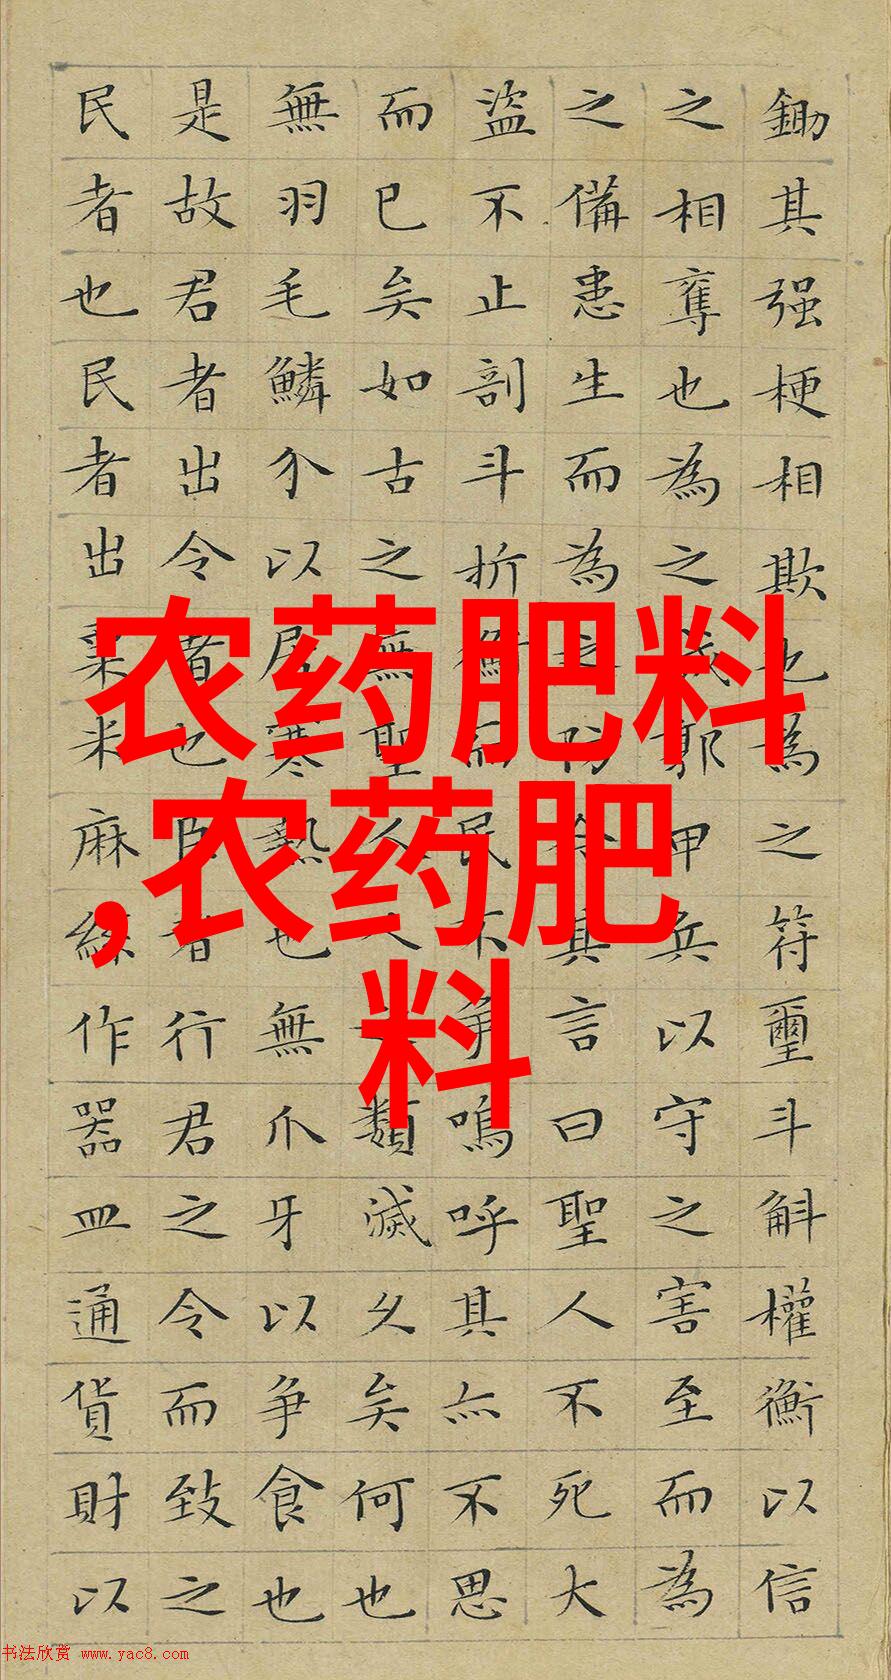 鋤其强梗相欺也為之符璽斗斛權衡以信
之相奪也為之城郭甲兵以守之害至而為
之備患生而為之防今其言曰聖人不死大
盜不止剖斗折衡而民不爭嗚呼其亦不思
而已矣如古之無聖人人之類滅久矣何也
無羽毛鱗介以居寒熱也無爪牙以爭食也
是故君者出令者也臣者行君之令而致之
民者也民者出粟米麻絲作器皿通貨財以
农药肥料
,农药肥
料
书法欣赏 www.yac8.com